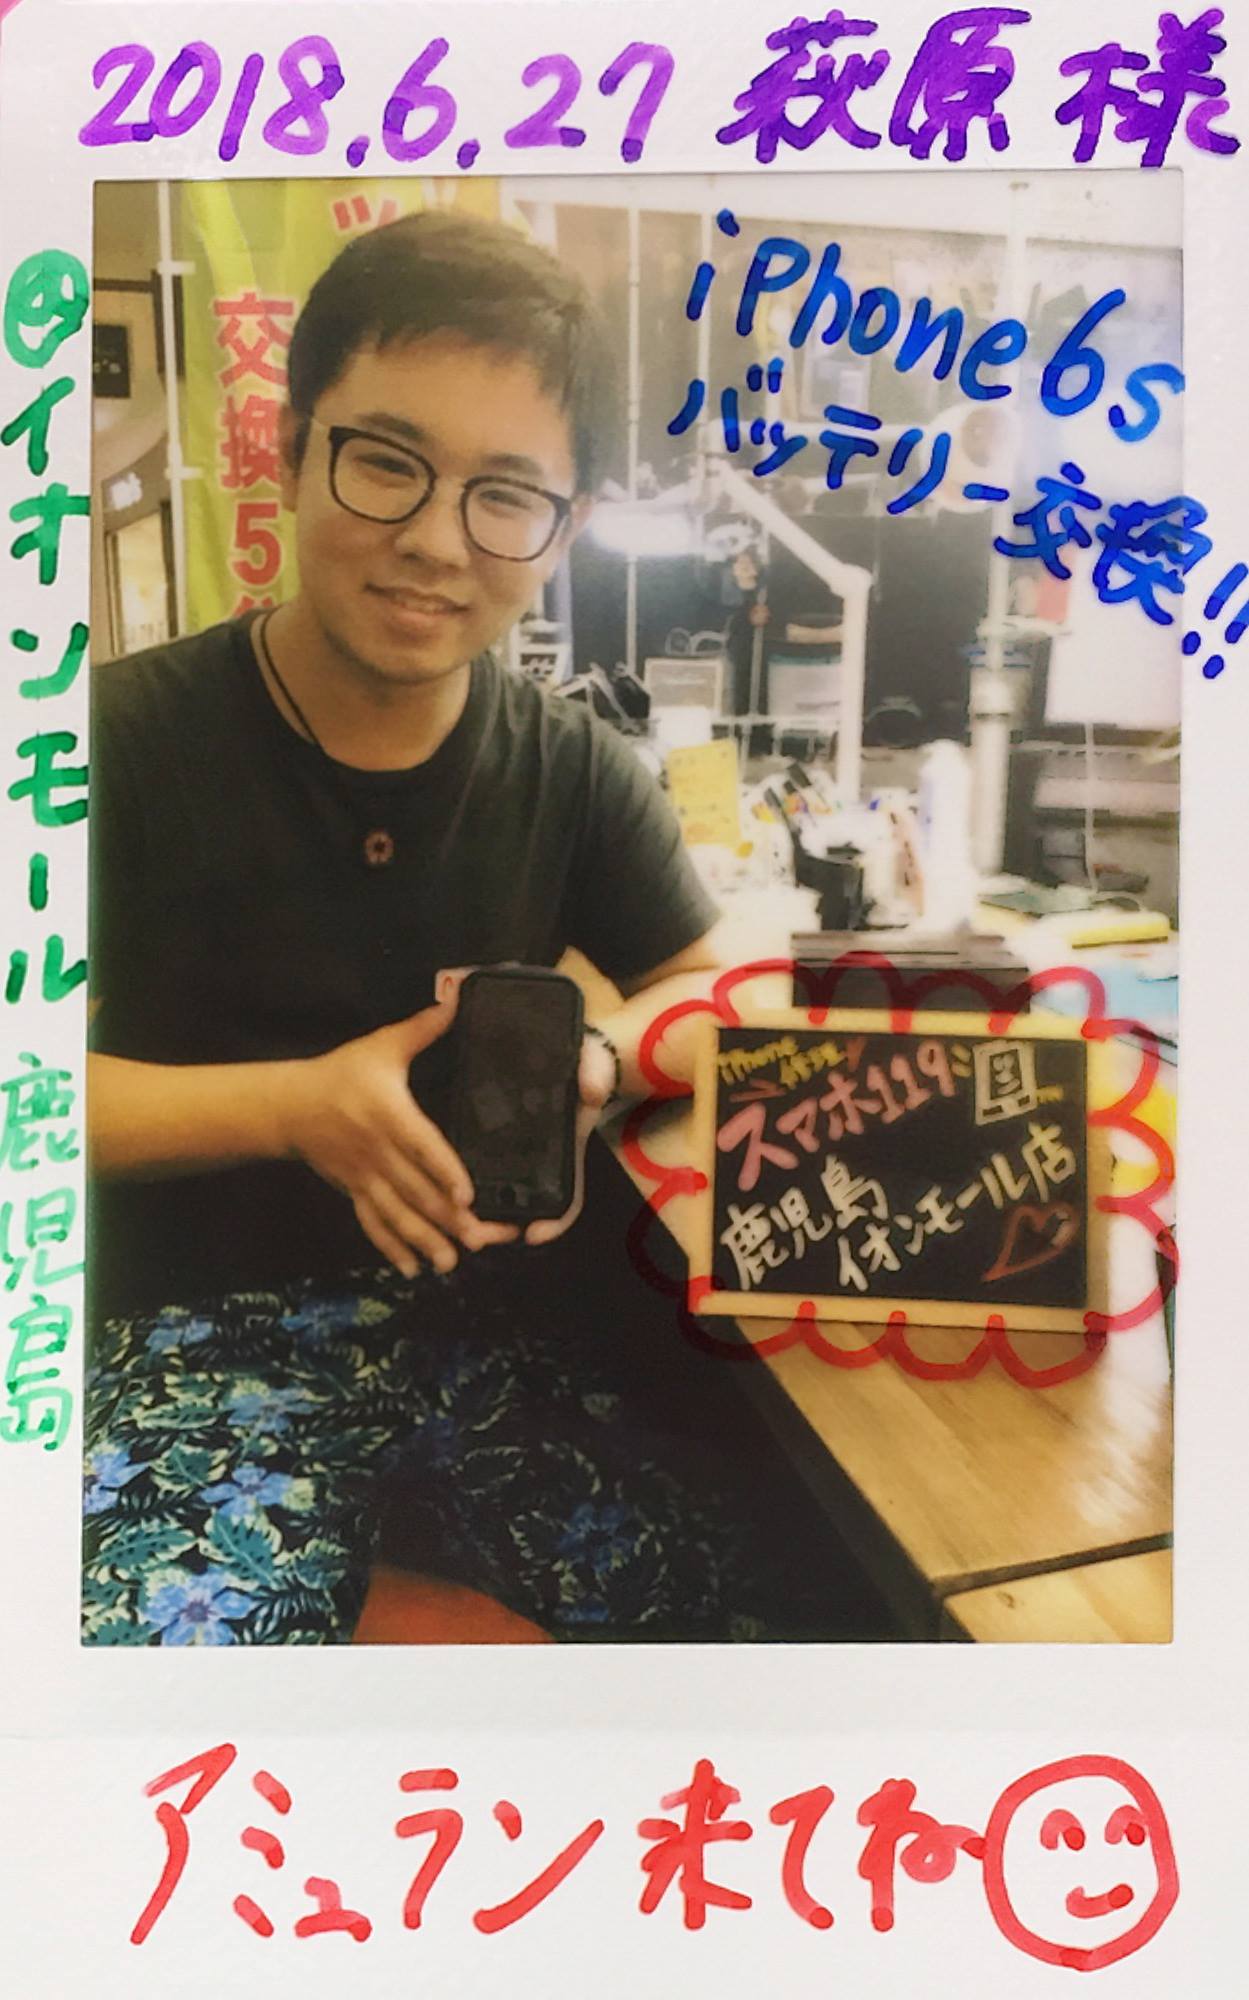 2018.6.27 萩原様
iPhone6s
バッテリー交換!!
@イオンモール 鹿児島
ッ
交換5
iPhone
修理
スマホ119
鹿児島
イオンモール店
アミュラン来てね